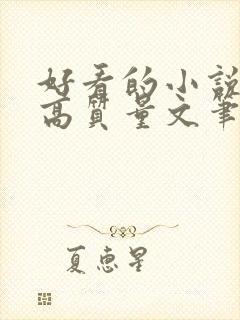 好看的小說
高質量文筆
夏惠星